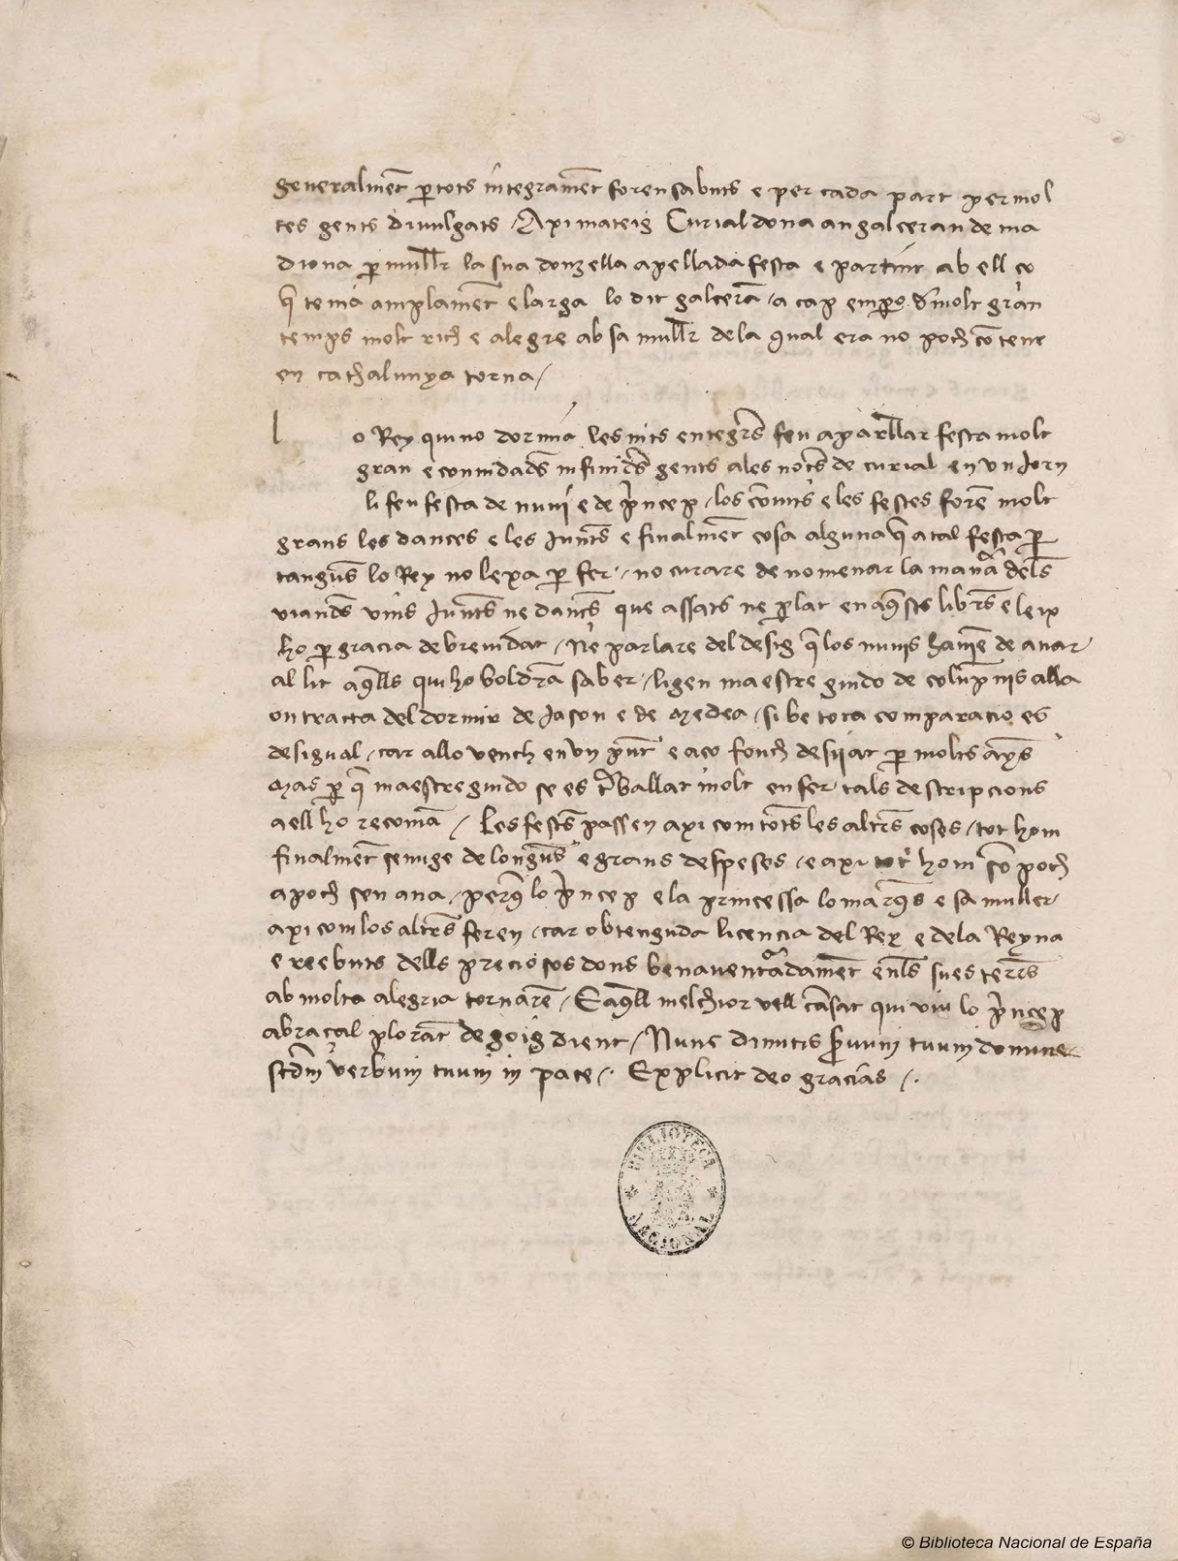 generalmẽt ꝑ tots integramẽt foren sabuts e per cada part per mol
tes gents diuulgats / Axi mateig Curial dona an galceran de ma
diona ꝑ mullr̃ la sua donzella apellada festa e partint ab ell ço
q̃ tenia amplamẽt e larga lo dit galcerã / a cap empꝑo d̃ molt gran
temps molt rich e alegre ab sa mullr̃ dela qual era no poch cõtent
en cathalunya torna /
l o Rey qui no dormia les nits entegrs̃ feu aparllar festa molt
gran e conuidads̃ infinids̃ gents ales nocs̃ de curial en vn Jorn
li feu festa de nuui e de p̃ncep / los cõuits e les festes forẽ molt
grans les dances e les Junts̃ e finalmẽt cosa alguna q̃ a tal festa ꝑ
tangus̃ lo Rey no lexa ꝑ fer / no curare de nomenar la manã dels̃
viands̃ vins Junts̃ ne dancs̃ que assats ne ꝑlat en aq̃sts librs̃ e leix
ho ꝑ gracia de breuidat / Ne parlare del desig q̃ los nuuis hauiẽ de anar
al lit aq̃lls qui ho voldrã saber / ligen maestre guido de colũpnis alla
on tracta del dormir de Jason e de Medea / si be tota comparacio es
desigual / car allo vench en vn pũt e aço fonch desijat ꝑ molts ays̃
Mas ꝑ q̃ maestre guido se es tr̃ballat molt en fer tals descripcions
a ell ho recomã / Les fests̃ passen axi com tots̃ les altrs̃ coses / tot hom
finalmẽt se nuge de longus̃ e grans despeses / e axi tot hom çõ poch
a poch sen ana / perq̃ lo p̃ncep e la princessa lo marq̃s e sa muller
axi com los altrs̃ feren / car obtenguda licencia del Rey e dela Reyna
e reebuts dells preciosos dons benauenturadamẽt enls̃ sues terrs̃
ab molta alegria tornarẽ / E aq̃ll melchior vell cãsat qui viu lo p̃ncep
abraçal plorãt de goig dient / Nunc dimitis s̃uum tuum domine
scd̃m verbum tuum in pace /. Explicit deo gracias /.
BIBLIOTECA NACIONAL
© Biblioteca Nacional de España